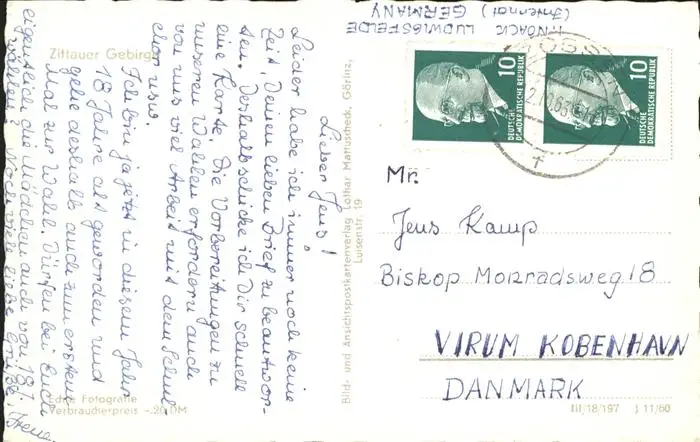 Zittauer Gebirge
Lieber Jens!
Leider habe ich immer noch keine
Zeit, Deinen lieben Brief zu beantwor-
ten. Deshalb schicke ich Dir schnell
eine Karte. Die Vorbereitungen zu
unseren Wahlen erfordern auch
von uns viel Arbeit mit dem Schul
chor usw.
Ich bin ja jetzt in diesem Jahr
18 Jahre alt geworden und
gehe deshalb auch zum ersten
Mal zur Wahl. Dürfen bei Euch
eigentlich die Mädchen auch von 18 J.
wählen? Noch viele liebe Grüße
Irene.
Echte Fotografie
Verbraucherpreis -.20 DM
Bild- und Ansichtspostkartenverlag Lothar Mattuscheck, Görlitz,
Luisenstr. 19
I. NÖACK LUDWIGSFELDE
(Internat) GERMANY
10
DEUTSCHE
DEMOKRATISCHE REPUBLIK
10
DEUTSCHE
DEMOKRATISCHE REPUBLIK
Mr.
Jens Kamp
Biskop Monradsweg 18
VIRUM KOBENHAVN
DANMARK
III/18/197 J 11/60